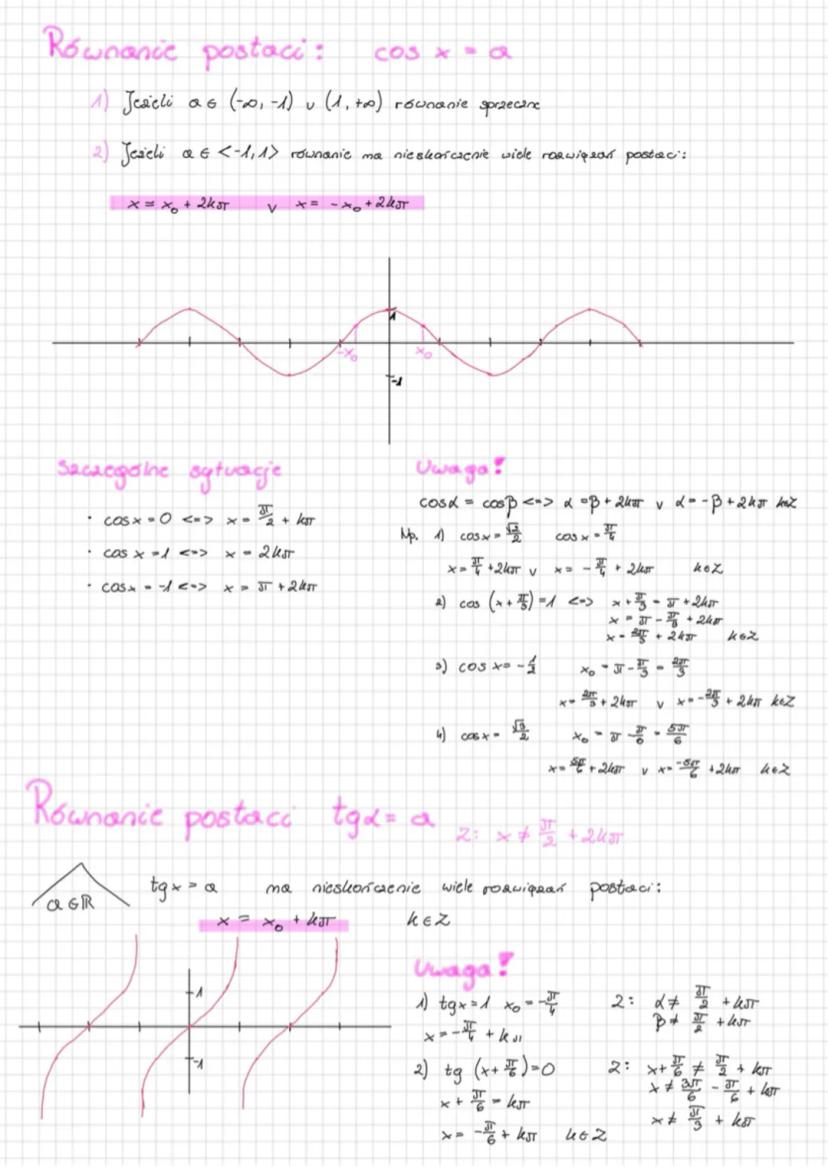 Równanie postaci: cos x = a
1) Jeżeli a ∈ (-∞, -1) ∪ (1, +∞) równanie sprzeczne
2) Jeżeli a ∈ <-1, 1> równanie ma nieskończenie wiele rozwiązań postaci:
x = x₀ + 2kπ ∨ x = -x₀ + 2kπ
1
-x₀ x₀
-1
Szczególne sytuacje
· cos x = 0 <=> x = π/2 + kπ
· cos x = 1 <=> x = 2kπ
· cos x = -1 <=> x = π + 2kπ
Uwaga!
cosα = cosβ <=> α = β + 2kπ ∨ α = -β + 2kπ k∈Z
Np. 1) cos x = √2/2 cos x = π/4
x = π/4 + 2kπ ∨ x = -π/4 + 2kπ k∈Z
2) cos (x + π/3) = 1 <=> x + π/3 = π + 2kπ
x = π - π/3 + 2kπ
x = 2π/3 + 2kπ k∈Z
3) cos x = -1/2 x₀ = π - π/3 = 2π/3
x = 2π/3 + 2kπ ∨ x = -2π/3 + 2kπ k∈Z
4) cos x = √3/2 x₀ = π - π/6 = 5π/6
x = 5π/6 + 2kπ ∨ x = -5π/6 + 2kπ k∈Z
Równanie postaci tgα = a Z: x ≠ π/2 + 2kπ
a ∈ ℝ tg x = a ma nieskończenie wiele rozwiązań postaci:
x = x₀ + kπ k∈Z
1
-1
Uwaga!
1) tg x = 1 x₀ = -π/4 Z: α ≠ π/2 + kπ
β ≠ π/2 + kπ
x = -π/4 + kπ
2) tg (x + π/6) = 0 Z: x + π/6 ≠ π/2 + kπ
x ≠ 3π/6 - π/6 + kπ
x + π/6 = kπ
x ≠ π/3 + kπ
x = -π/6 + kπ k∈Z